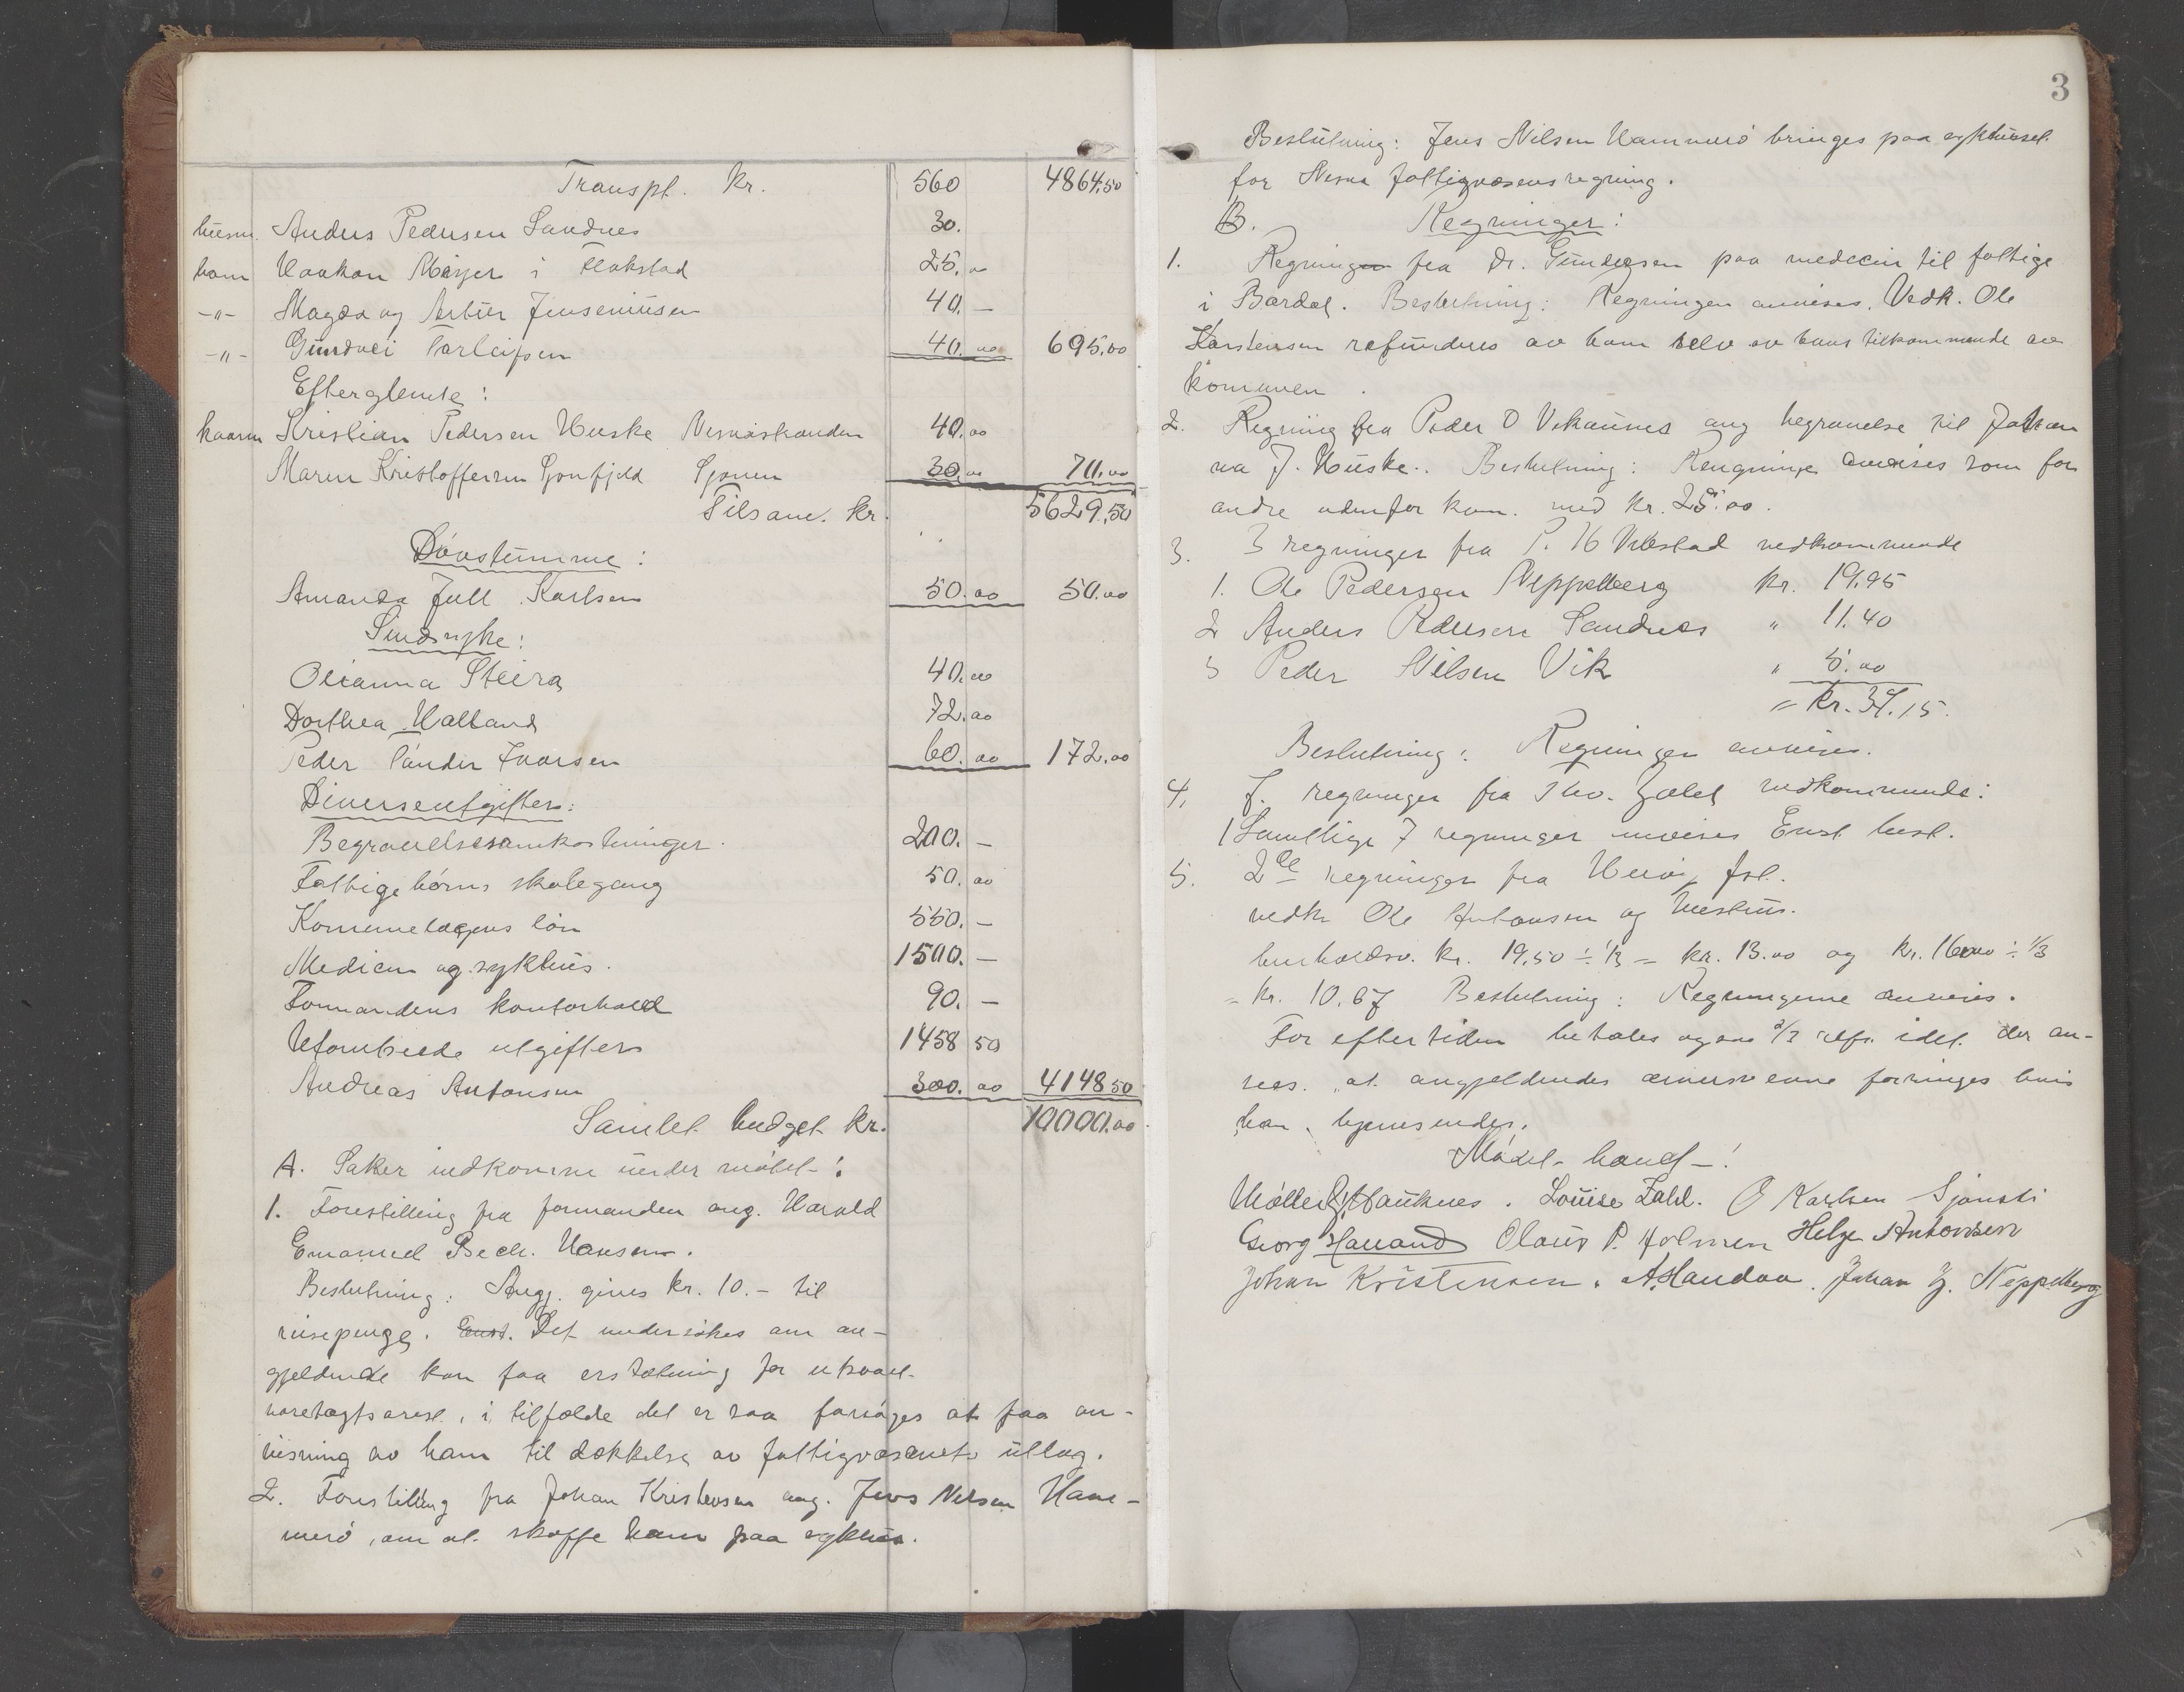 Transpt. Kr. 560 4864.50
husm. Anders Pedersen Sandnes 30.
barn Haakon Majer i Flokstad 25.00
-"- Magda og Artur Jenseniusen 40. -
-"- Gundvei Torleifsen 40.00 695.00
Efterglemte:
kaarm Kristian Pedersen Huske Nesnastranden 40.00
Maren Kristoffersen Sjonfjeld Sjonen 30.00 70.00
Tilsam. kr. 5629.50
Døvstumme:
Amanda Jull Karlsen 50.00 50.00
Sindsyke:
Olianna Steira 40.00
Dorthea Halland 72.00
Peder Pander Ivarsen 60.00 172.00
Diverseutgifter:
Begravelsesomkostninger. 200. -
Fattige børns skolegang 50.00
Kommunelægens løn 550. -
Medicin og sykhus. 1500. -
Formandens kontorhold 90. -
Uforutseede utgifter 1458 50
Andreas Antonsen 300.00 4148 50
Samlet budget kr. 10000.00
A. Saker indkomne under møtet:
1. Forestilling fra formanden ang. Harald
Emanuel Bech. Hansen.
Beslutning: Angj. gives kr. 10.- til
reisepenge. Enst. Det undersøkes om an-
gjeldende kan faa erstatning for utstaaet
varetægtsarest, i tilfælde det er saa forsøges at faa an-
visning av ham til dækkelse av fattigvæsenets utlæg.
2. Forestilling fra Johan Kristensen ang. Jens Nilsen Ham-
merø, om at skaffe ham paa sykhus.
3
Beslutning: Jens Nilsen Hammerø bringes paa sykhuset
for Nesna fattigvæsens regning.
B. Regninger:
1. Regningen fra Dr. Gundersen paa medecin til fattige
i Bardal. Beslutning: Regningen anvises. Vedk. Ole
Karstensen refunderes av ham selv av hans tilkommende av
komunen.
2. Regning fra Peder O Vikaunes ang begravelse til Johan
na J. Huske.. Beslutning: Rengninge anvises som for
andre utenfor kom. med kr. 25.00.
3. 3 regninger fra P. vedkommende
1. Ole Pedersen Neppelberg kr. 19.95
2 Anders Pedersen Sandnes " 11.40
3 Peder Nilsen Vik " 5.00
= kr. 37.15.
Beslutning: Regningen anvises.
4. 7. regninger fra Tho. Zahl vedkommende:
1 Samtlige 7 regninger anvises Enst. best.
5. 2 regninger fra fsl.
vedk Ole Antonsen og
kr. 19.50 ÷ 1/3 = kr. 13.00 og kr. 16.00 ÷ 1/3
= kr. 10.67 Beslutning: Regningerne anvises.
For eftertiden betales ogsaa 2/3 refr. idet der an-
sees at angjeldendes ervervsevne forringes hvis
han hjemsendes.
Mødet hævet!
Møller Hauknes. Louise Zahl. O Karlsen Sjonsti
Georg Hauand Olaus P. Holmen Helge Antonsen
Johan Kristensen. A. Handaa. Johan J. Neppelberg